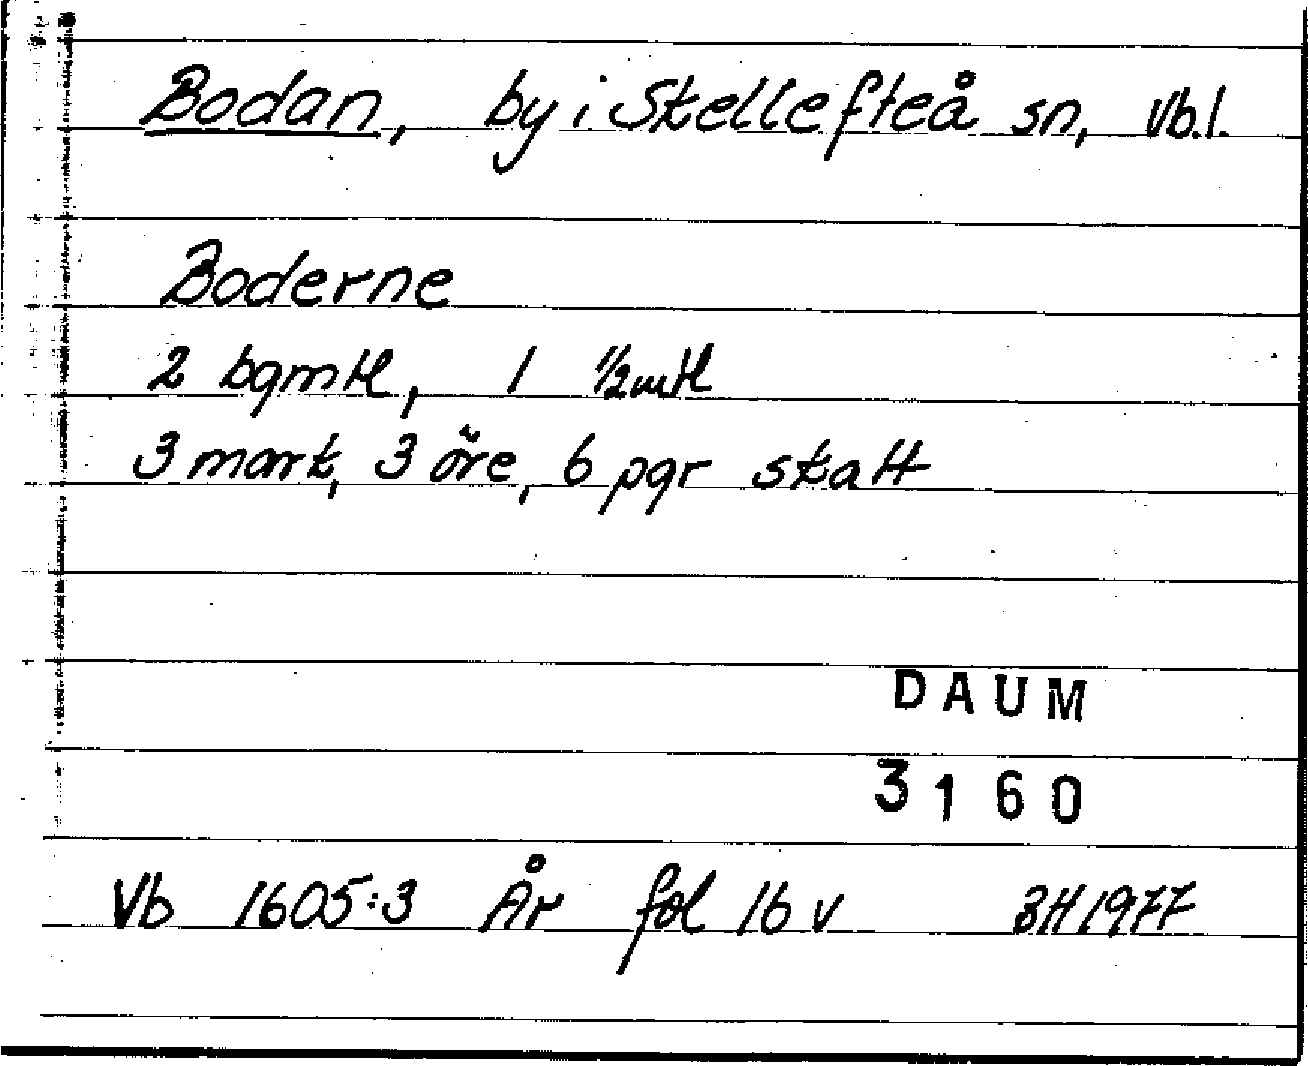 Bodan, by i Skellefteå sn, Vb.l.
Boderne
2 bgmtl, 1 ½mtl
3 mark, 3 öre, 6 pgr skatt
DAUM
3160
Vb 1605:3 År fol 16 v BH 1977